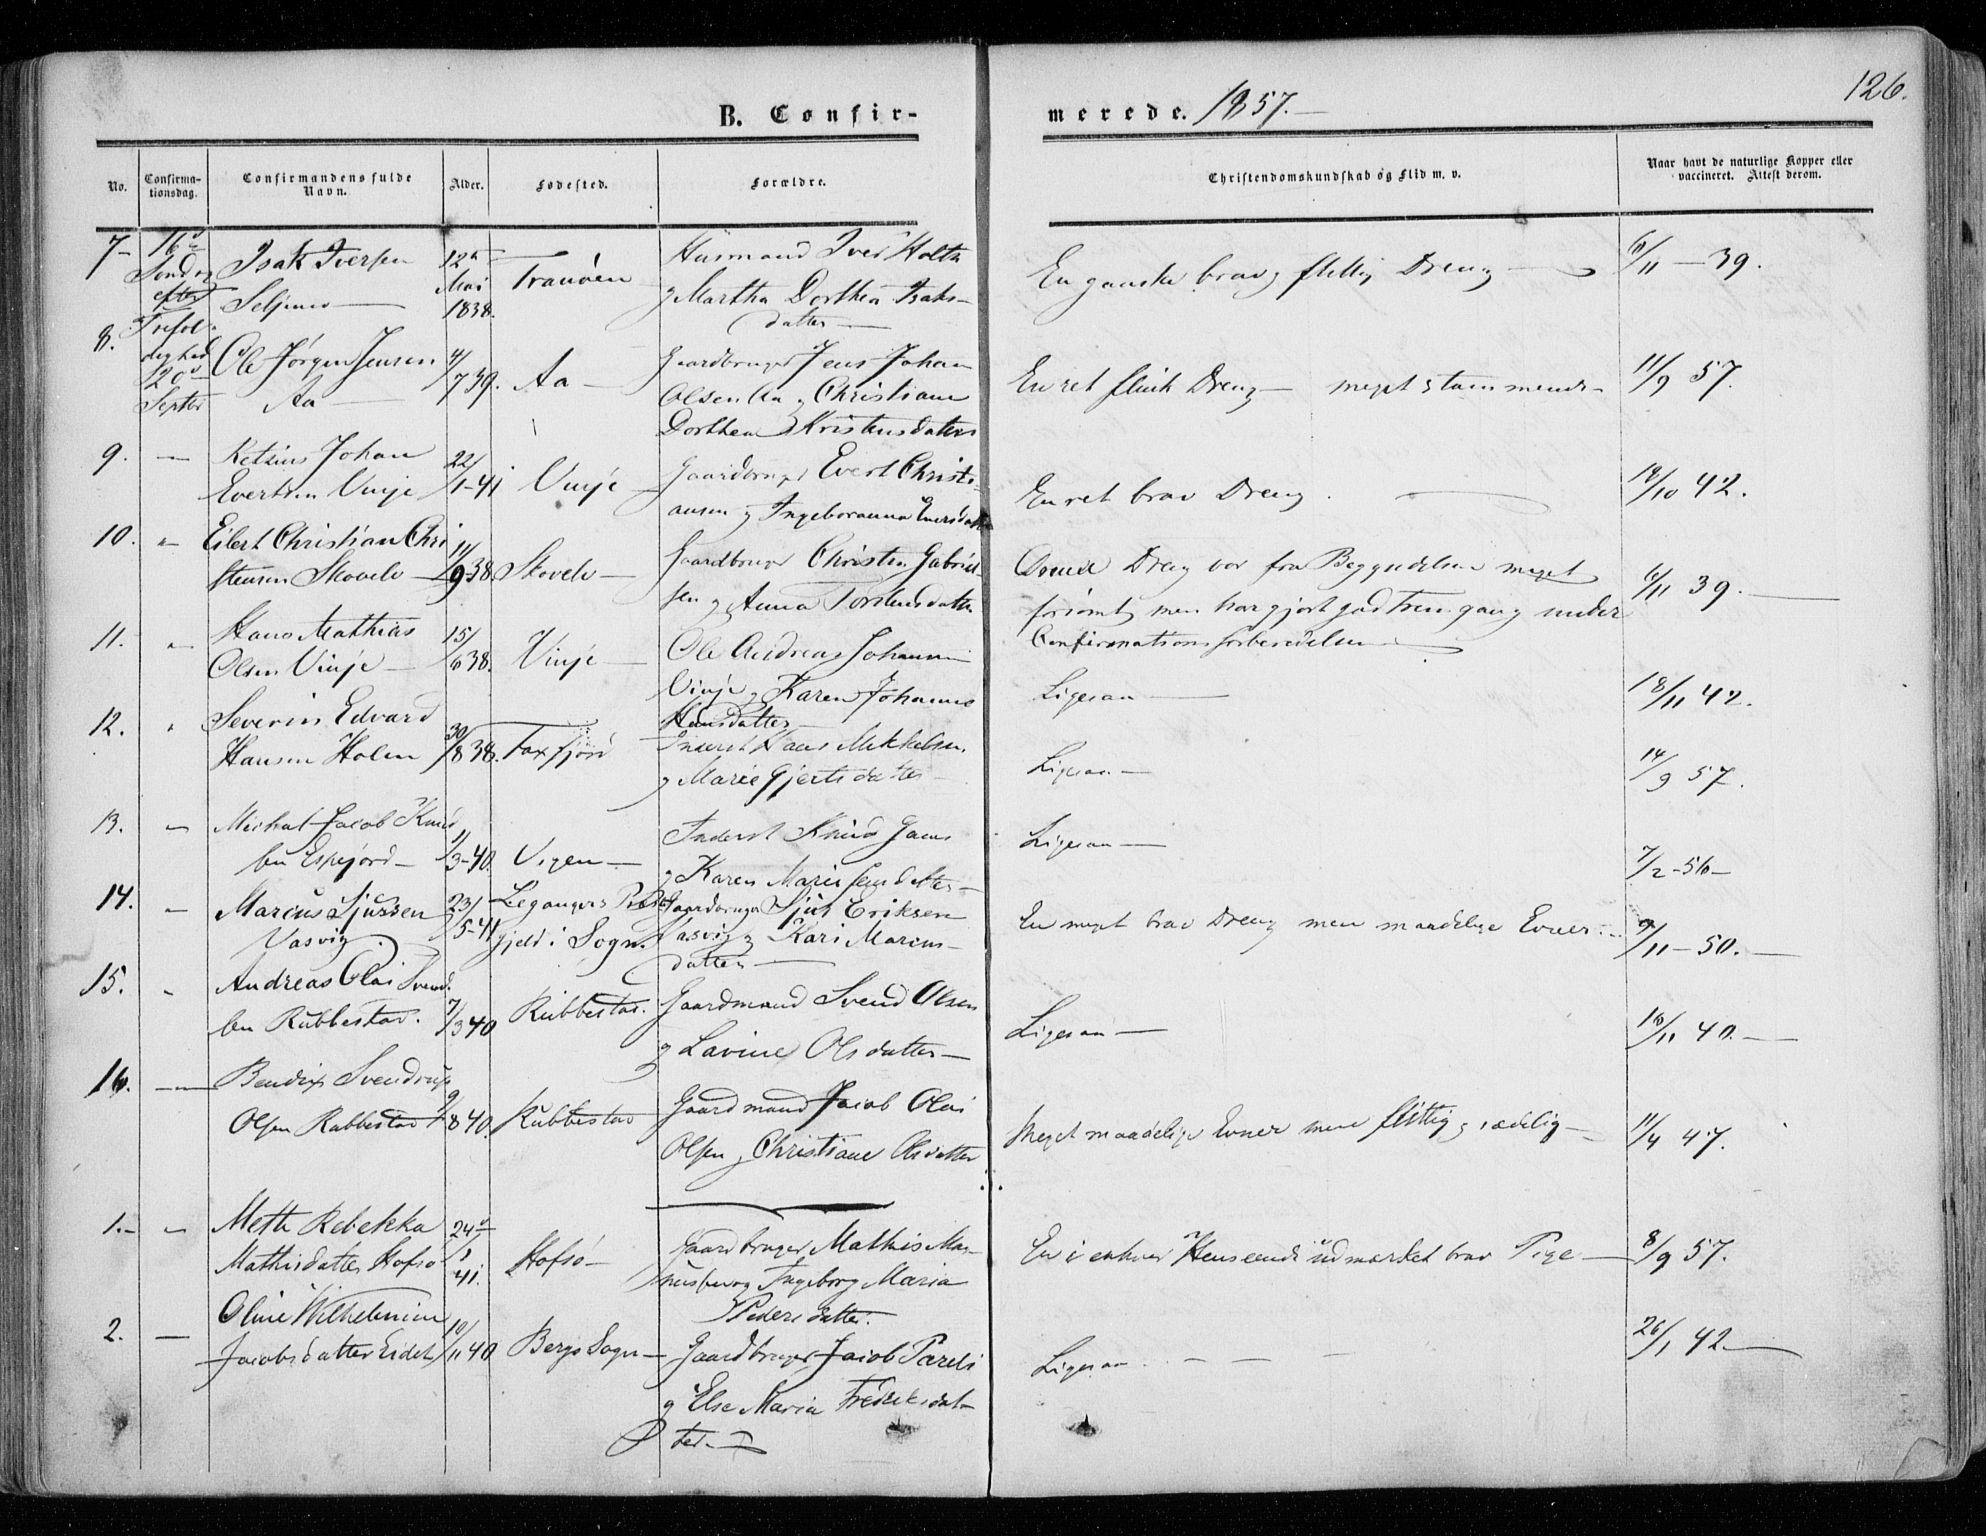 126.
B. Confirmerede. 1857.
No.
Confirmationsdag.
Confirmandens fulde Navn.
Alder.
Fødested.
Forældre.
Christendomskundskab og Flid m. v.
Naar havt de naturlige Kopper eller vaccineret. Attest derom.
7- 16d Søndag efter Trefoldighed 20d Septbr
Isak Iversen
12te Mai 1838.
Tranöen
Husmand Iver Holte
g Martha Dorthea Isaks-
datter
En ganske brav g flittig Dreng
6/11 - 39.
8.
Ole Jörgen Jensen
Aa
4/7 39.
Aa
Gaardbruger Jens Johan
Olsen Aa g Christiane
Dorthea Kristensdatter
En ret flink Dreng - meget stammende -
11/9 57.
9. -
Johan
Evertsen Vinje
22/1-41
Vinje
Gaardbruger Evert Christi-
ansen g Ingeboranna Eversdatter
En ret brav Dreng.
19/10 42.
10. "
Eilert Christian Chri
stensen Skovelv
11/9 38.
Skovelv
Gaardbruger Christen Gabriel-
sen g Anna Torstensdatter
Denne Dreng var fra Begyndelsen meget
forsömt, men har gjort god Fremgang under
Confirmationsforberedelsen
6/11 39.
11. "
Hans Mathias
Olsen Vinje
15/6 38.
Vinje
Ole Andreas Johannesen
Vinje g Karen Johanne
Hansdatter
Ligesaa
18/11 42.
12. "
Severin Edvard
Hansen Holen
30/8 38.
Taxfjord
Inderst Hans Mikkelsen
g Marie Gjertsdatter
Ligesaa
14/9 57.
13. "
Michal Jacob Knud
sen Espejord
1/3-40.
Vigen
Inderst Knud
g Karen Marie Jensdatter
Ligesaa
7/2-56
14. "
Marcus Sjursen
Vasvig
23/5-41
Leganger Præste
gjeld i Sogn.
Gaardbruger Sjur Eriksen
Vasvig g Kari Marcus-
datter
En meget brav Dreng men maadelige Evner.
9/11 - 50.
15. "
Andreas Olai Svend-
sen Rubbestad.
7/3 40
Rubbestad.
Gaardmand Svend Olsen
g Lavine Olsdatter
Ligesaa
16/11 40.
16. "
Bendix Svendrup
Olsen Rubbestad
9/8 40.
Rubbestad
Gaardmand Jacob Olai
Olsen g Christiane Olsdatter
Meget maadelige Evner men flittig g sædelig
11/4 47.
1.- "
Meth Rebekka
Mathisdatter Hofsö
24d/3 41.
Hofsö
Gaardbruger Mathis Mag-
nusen g Ingeborg Maria
Pedersdatter.
En i enhver Henseende udmærket brav Pige
8/9 57.
2. -
Oline Wilhelmine
Jacobsdatter Eidet
10/11 40
Bergs Sogn
Gaardbruger Jacob Pareli
g Else Maria Fredriksdat-
ter.
Ligesaa
26/1 42.